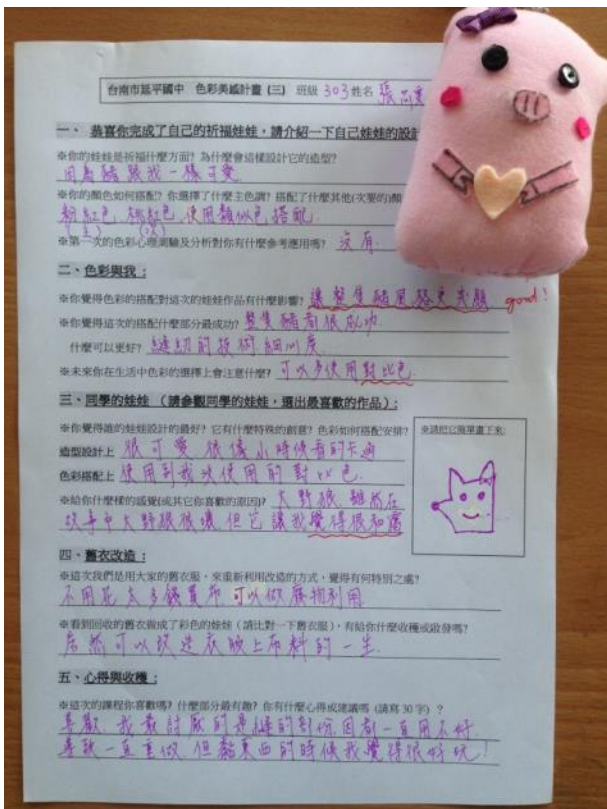 台南市延平國中 色彩美感計畫 (三) 班級 303 姓名 張
一、 恭喜你完成了自己的祈福娃娃，請介紹一下自己娃娃的設計
※你的娃娃是祈福什麼方面? 為什麼會這樣設計它的造型?
因為豬跟我一樣可愛
※你的顏色如何搭配? 你選擇了什麼主色調? 搭配了什麼其他(次要的)顏
粉紅色 桃紅色 使用類似色搭配
(主) (次)
※第一次的色彩心理測驗及分析對你有什麼參考應用嗎? 沒有
二、色彩與我：
※你覺得色彩的搭配對這次的娃娃作品有什麼影響? 讓整隻豬風格更明顯 good!
※你覺得這次的搭配什麼部分最成功? 整隻豬都很成功.
什麼可以更好? 縫紉的技術 細心度.
※未來你在生活中色彩的選擇上會注意什麼? 可以多使用對比色.
三、同學的娃娃 （請參觀同學的娃娃，選出最喜歡的作品）：
※你覺得誰的娃娃設計的最好? 它有什麼特殊的創意? 色彩如何搭配安排?
造型設計上 很可愛 很像小時候看的卡通
色彩搭配上 使用到我沒使用的對比色.
※給你什麼樣的感覺(或其它你喜歡的原因)? 大野狼 雖然在
故事中大野狼很壞 但它讓我覺得很和藹
※請把它簡單畫下來:
四、舊衣改造：
※這次我們是用大家的舊衣服，來重新利用改造的方式，覺得有何特別之處?
不用花太多錢買布 可以做廢物利用
※看到回收的舊衣做成了彩色的娃娃（請比對一下舊衣服），有給你什麼收穫或啟發嗎?
居然可以改造衣服上布料的一生.
五、心得與收穫：
※這次的課程你喜歡嗎? 什麼部分最有趣? 你有什麼心得或建議嗎 (請寫 30 字) ?
喜歡. 我最討厭的是縫的部份因為一直用不好
導致一直重做. 但黏東西的時候我覺得很好玩!